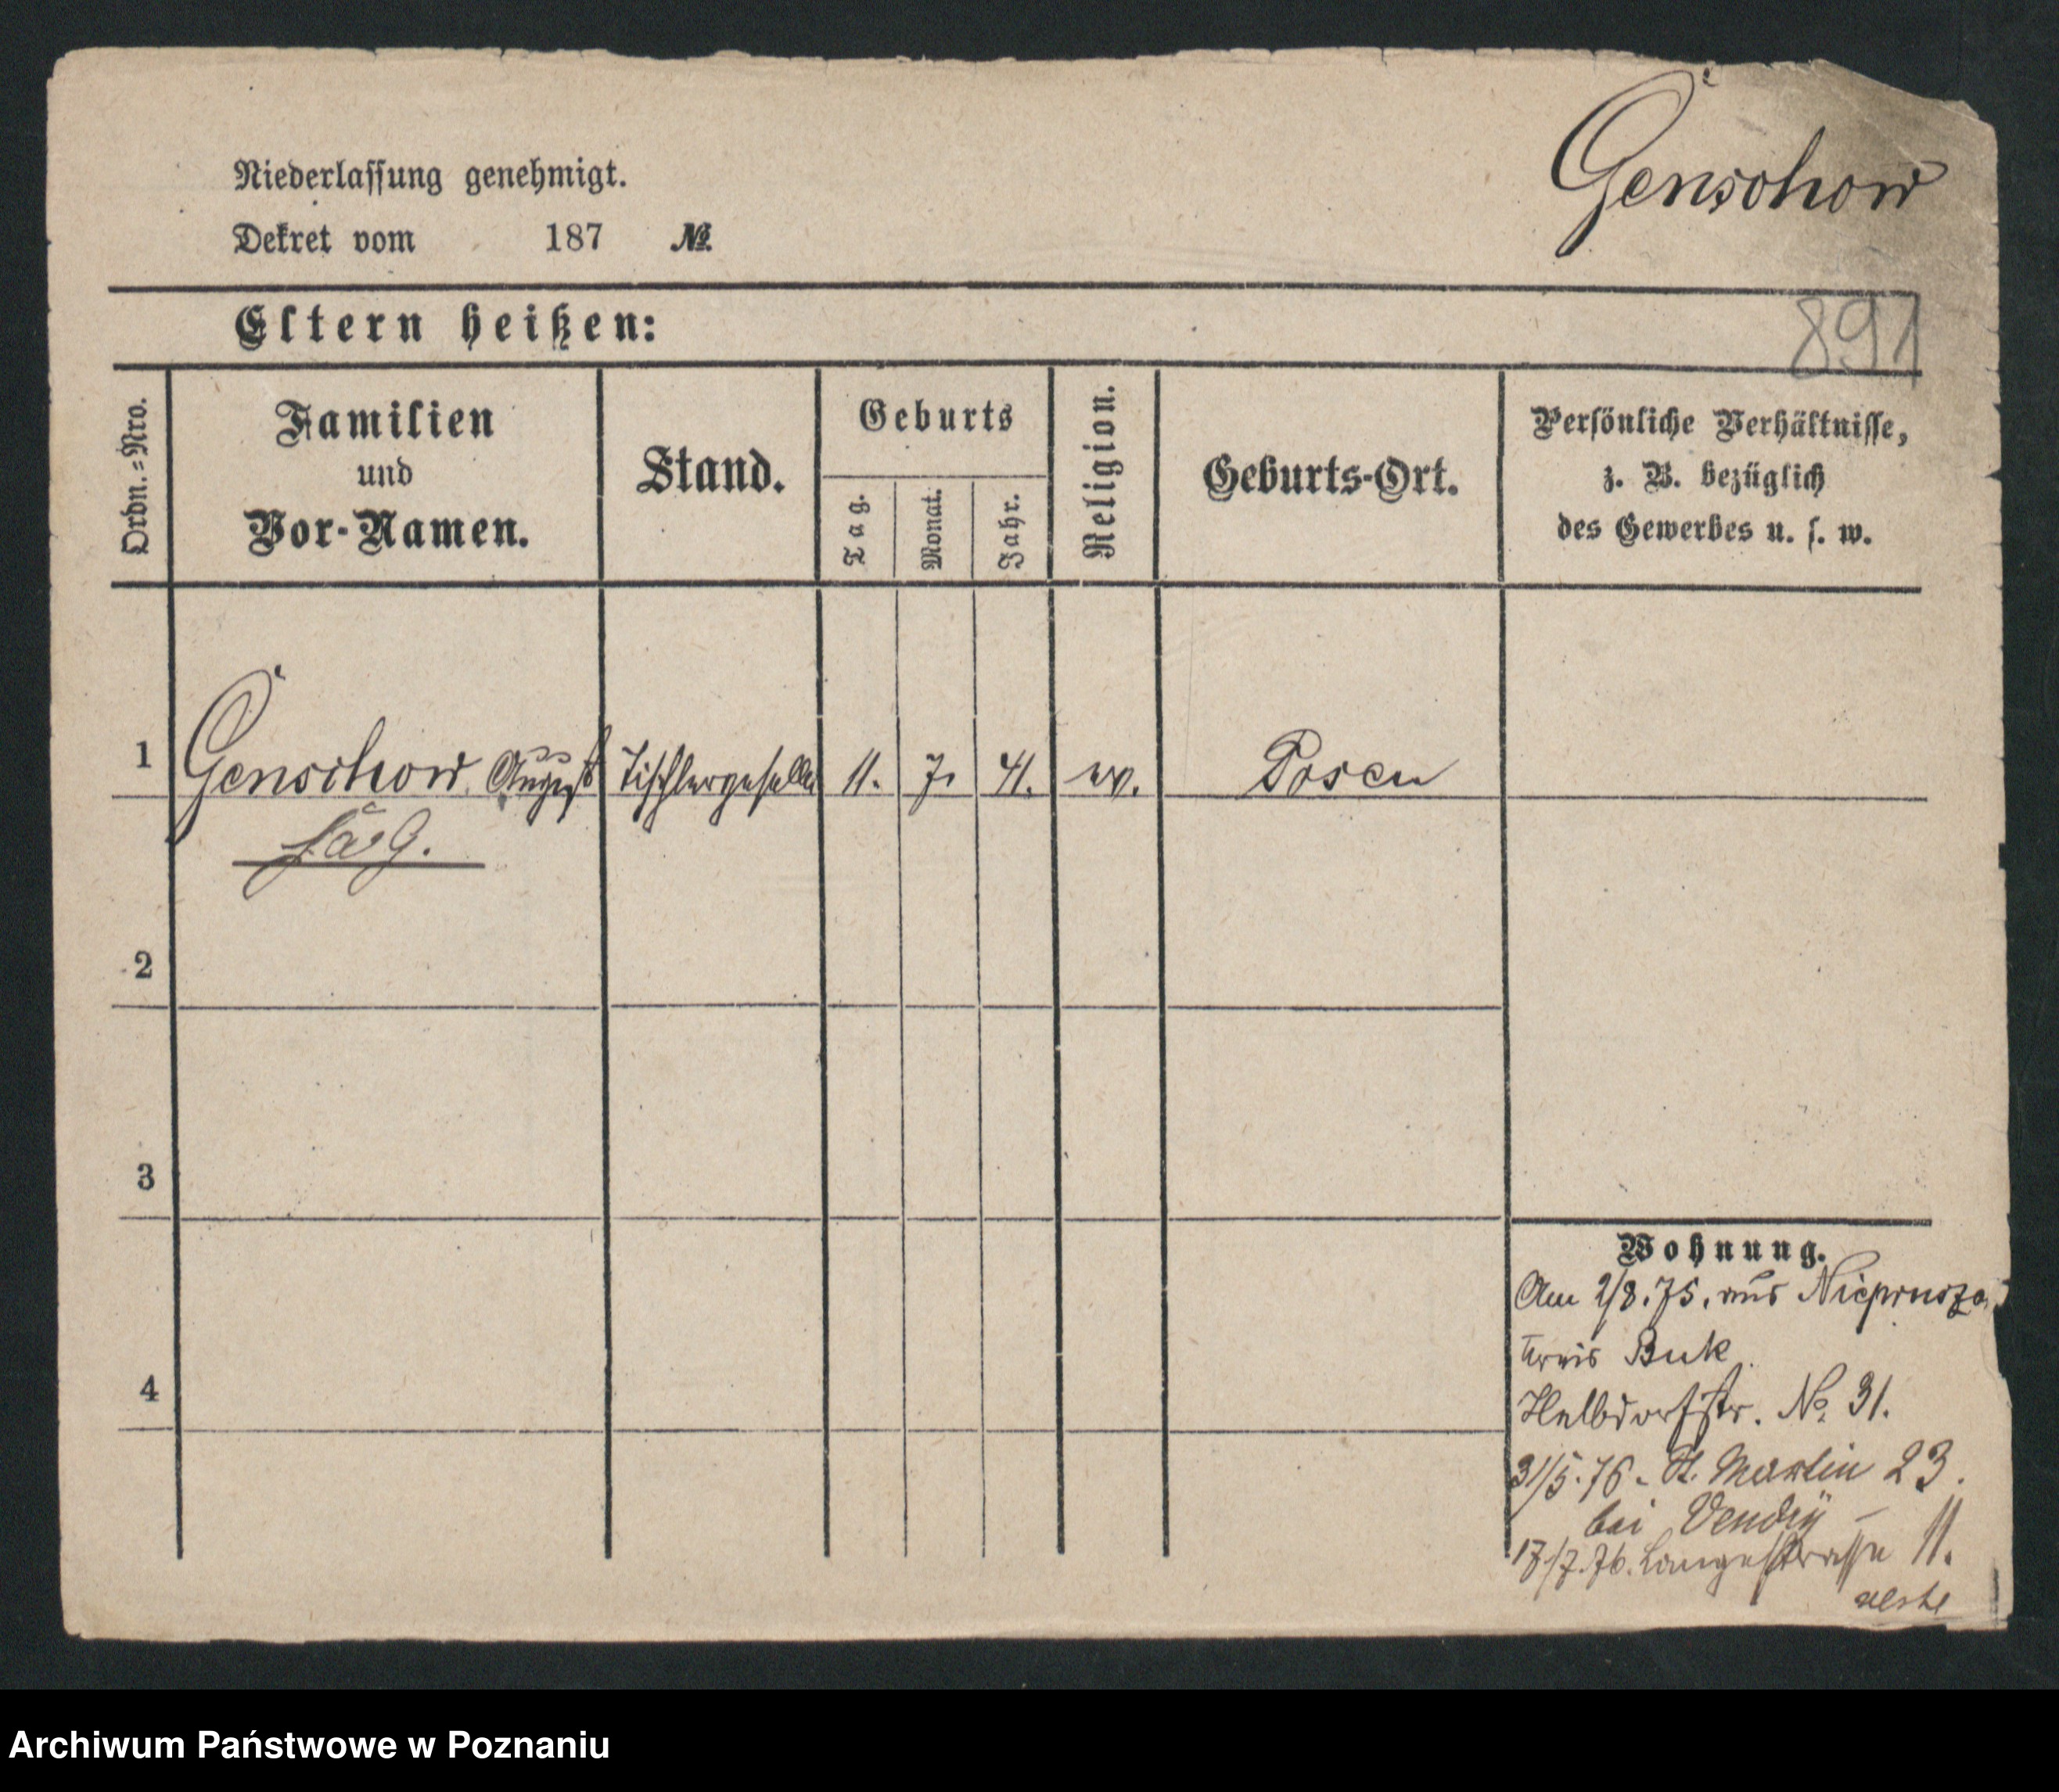 Genschow
Niederlassung genehmigt.
Dekret vom 187 №
Eltern heißen:
891
Ordn.=Nro.
Familien
und
Vor-Namen.
Stand.
Geburts
Tag.
Monat.
Jahr.
Religion.
Geburts-Ort.
Persönliche Verhältnisse,
z. B. bezüglich
des Gewerbes u. s. w.
1 Genschow August Tischlergeselle 11. 7. 41. ev. Posen
2
3
4
Wohnung.
Am 2/8. 75. aus Niepruszewo
Kreis Buk
Halbdorfstr. No. 31.
31/5. 76. St. Martin 23.
bei
17/7. 76. Langestrasse 11.
Archiwum Państwowe w Poznaniu